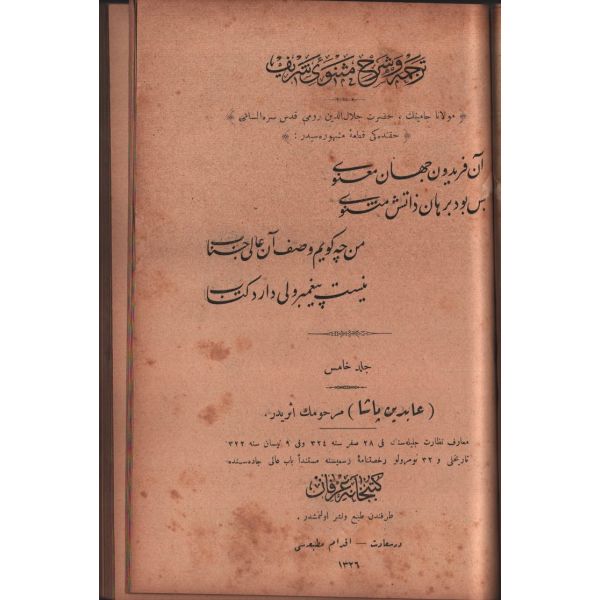 ترجمه و شرح مثنوئ شریف
﴿ مولانا جامینك ، حضرت جلال‌الدین رومی قدس سره السامی ﴾
﴿ حقنده‌کی قطعۀ مشهوره‌سیدر : ﴾
آن فریدون جهان معنوی
بس بود برهان ذاتش مثنوی
من چه کویم وصف آن عالی جناب
نیست پیغمبر ولی دارد کتاب
جلد خامس
( عابدین پاشا ) مرحومك اثریدر .
معارف نظارت جلیله‌سنك فی ٢٨ صفر سنه ٣٢٤ وفی ٩ نیسان سنه ٣٢٢
تاریخلی و ٣٢ نومرولو رخصتنامۀ رسمیسنه مستنداً باب عالی جاده‌سنده
کتبخانۀ عرفان
طرفندن طبع ونشر اولنمشدر .
درسعادت — اقدام مطبعه‌سی
١٣٢٦